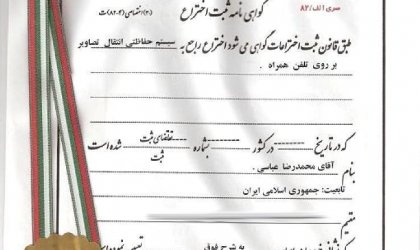 سری الف/۸۲
گواهی نامه ثبت اختراع
(۳۰/اختصاصی(۴-۸۲)ت
طبق قانون ثبت اختراعات گواهی می شود اختراع راجع به سیستم حفاظتی انتقال تصاویر
بر روی تلفن همراه .
که در تاریخ -------- در کشور -------- بشماره -------- تقاضای ثبت شده است
ثبت
بنام آقای محمدرضا عباسی .
تابعیت: جمهوری اسلامی ایران
مقیم
به شرح فوق